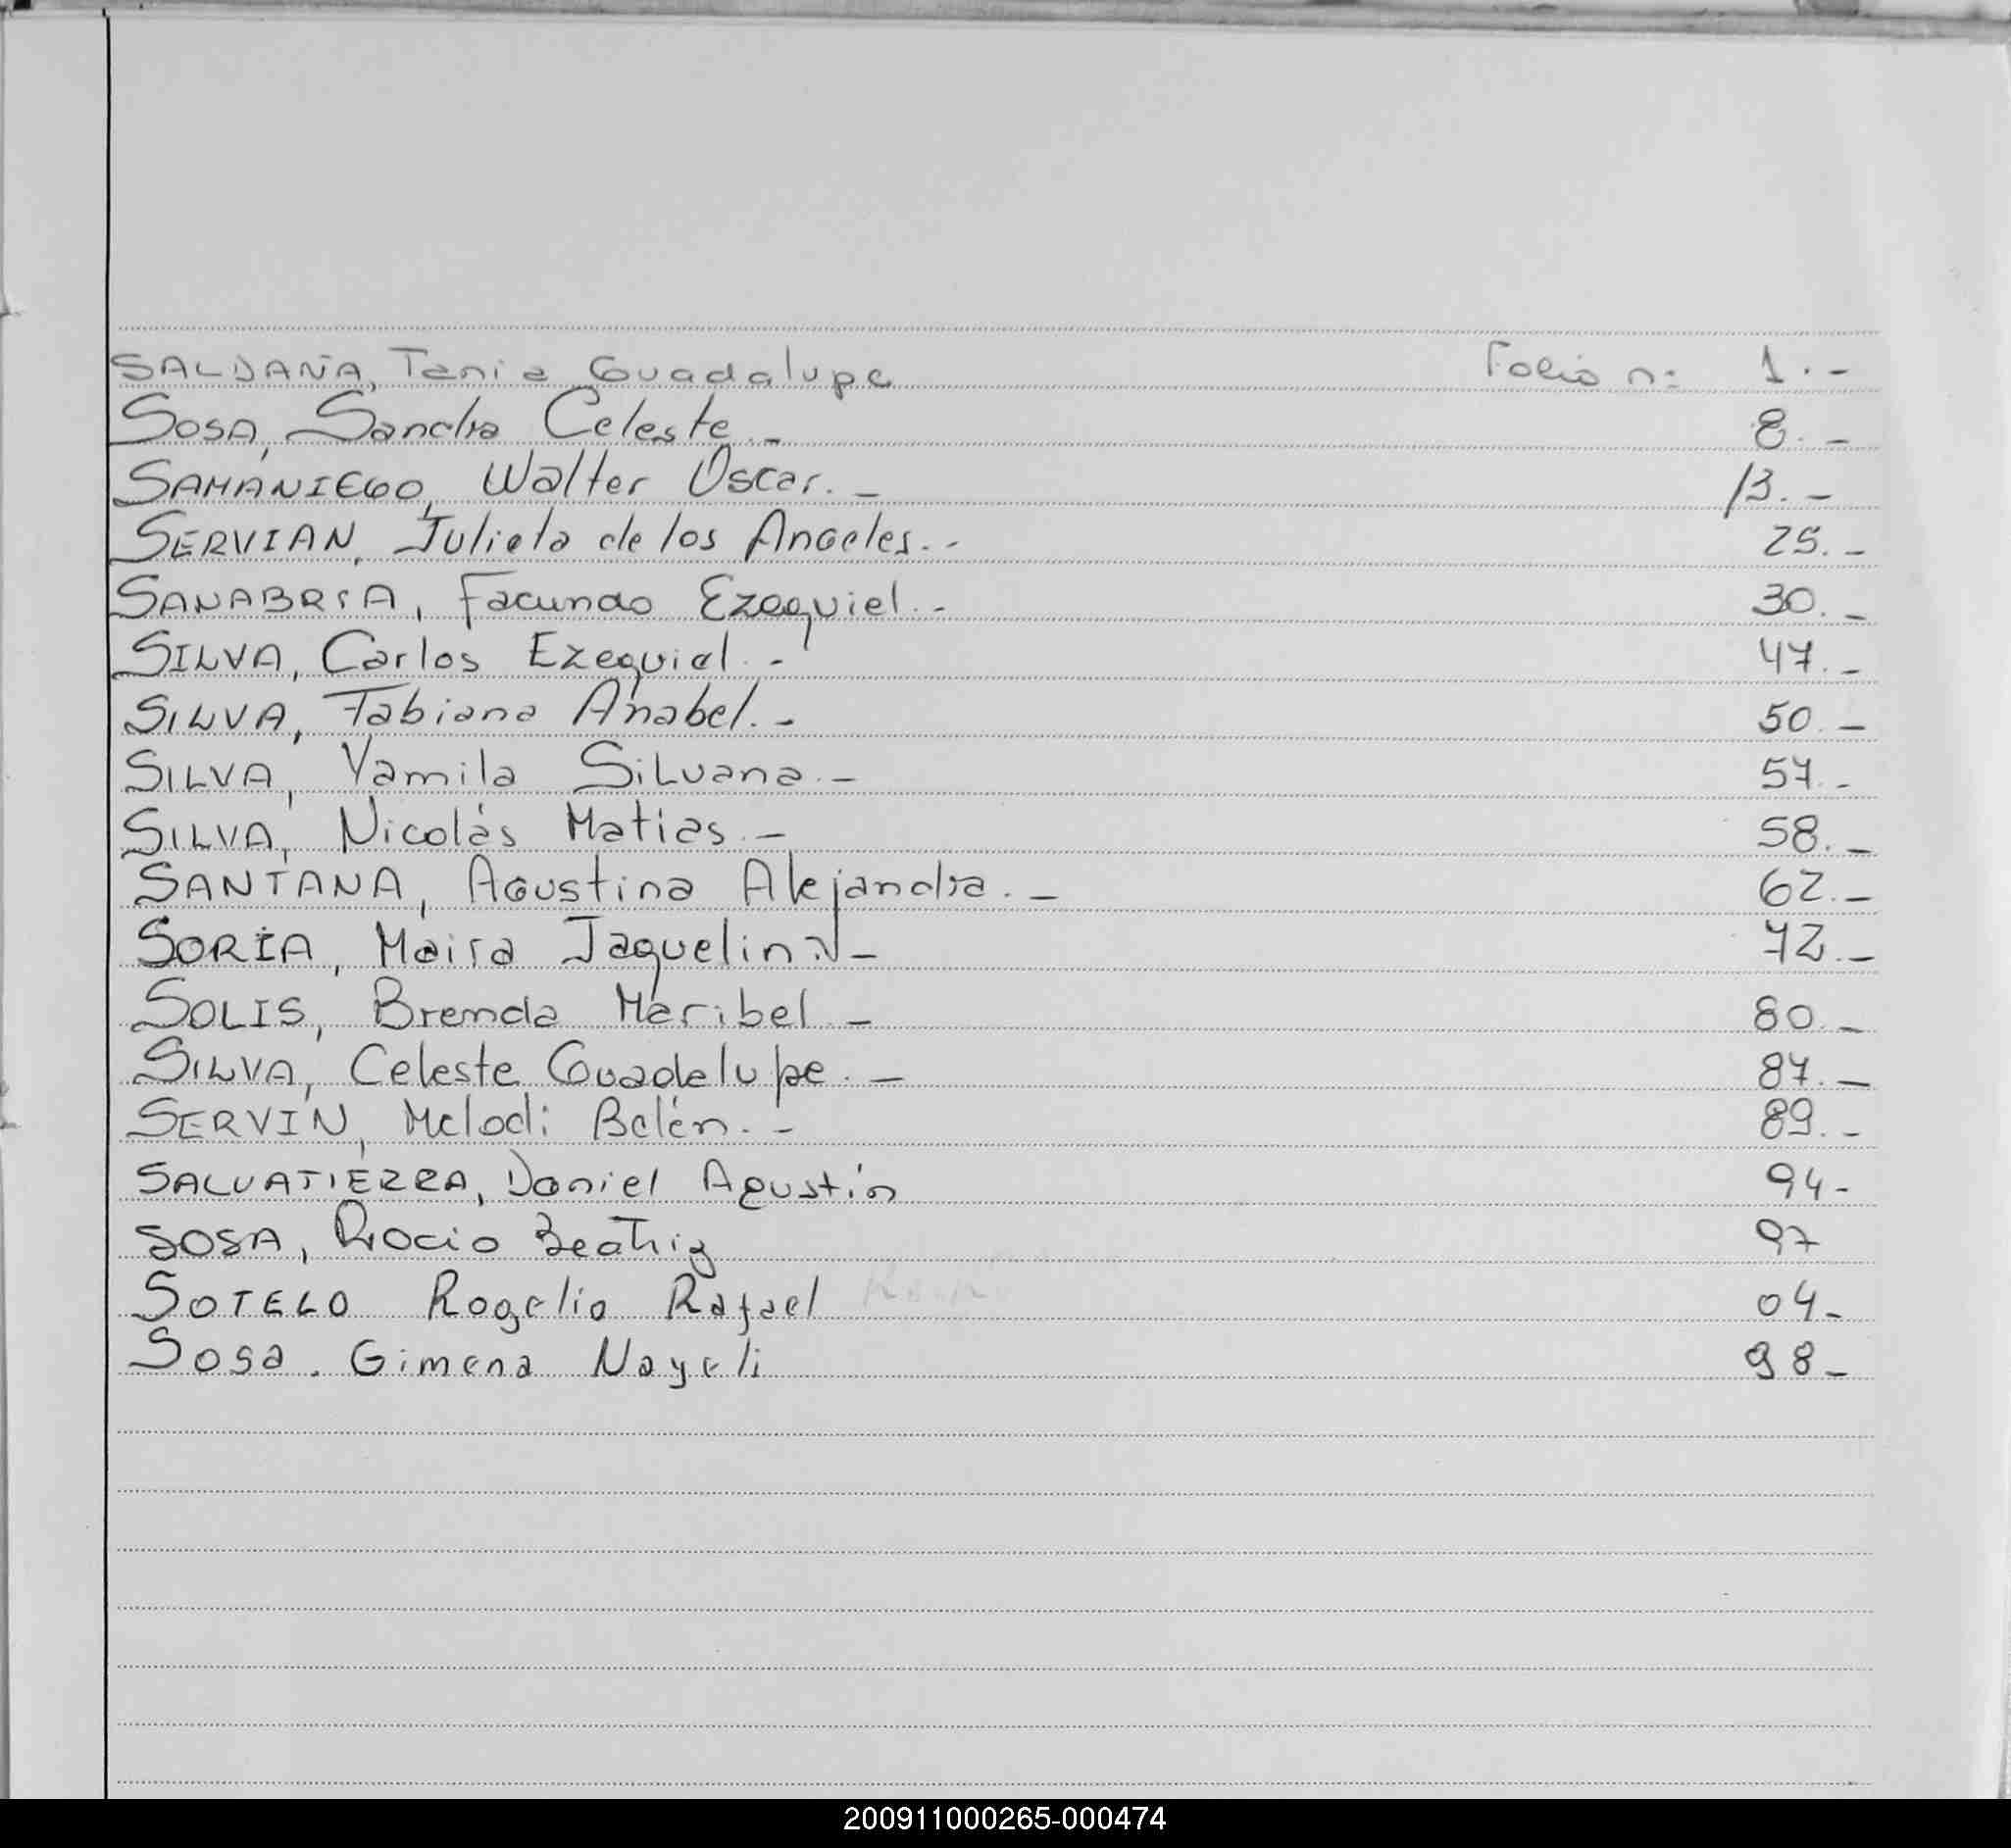 SALDAÑA, Tania Guadalupe Folio n: 1.-
SOSA, Sandra Celeste.- 8.-
SAMANIEGO, Walter Oscar.- 13.-
SERVIAN, Julieta de los Angeles.- 25.-
SANABRIA, Facundo Ezequiel.- 30.-
SILVA, Carlos Ezequiel.- 47.-
SILVA, Fabiana Anabel.- 50.-
SILVA, Yamila Silvana.- 57.-
SILVA, Nicolás Matias.- 58.-
SANTANA, Agustina Alejandra.- 62.-
SORIA, Maira Jaquelin.- 72.-
SOLIS, Brenda Maribel.- 80.-
SILVA, Celeste Guadalupe.- 87.-
SERVIN, Melodi Belén.- 89.-
SALVATIERRA, Daniel Agustín 94-
SOSA, Rocio Beatriz 97
SOTELO Rogelio Rafael 04-
Sosa. Gimena Nayeli 98-
200911000265-000474